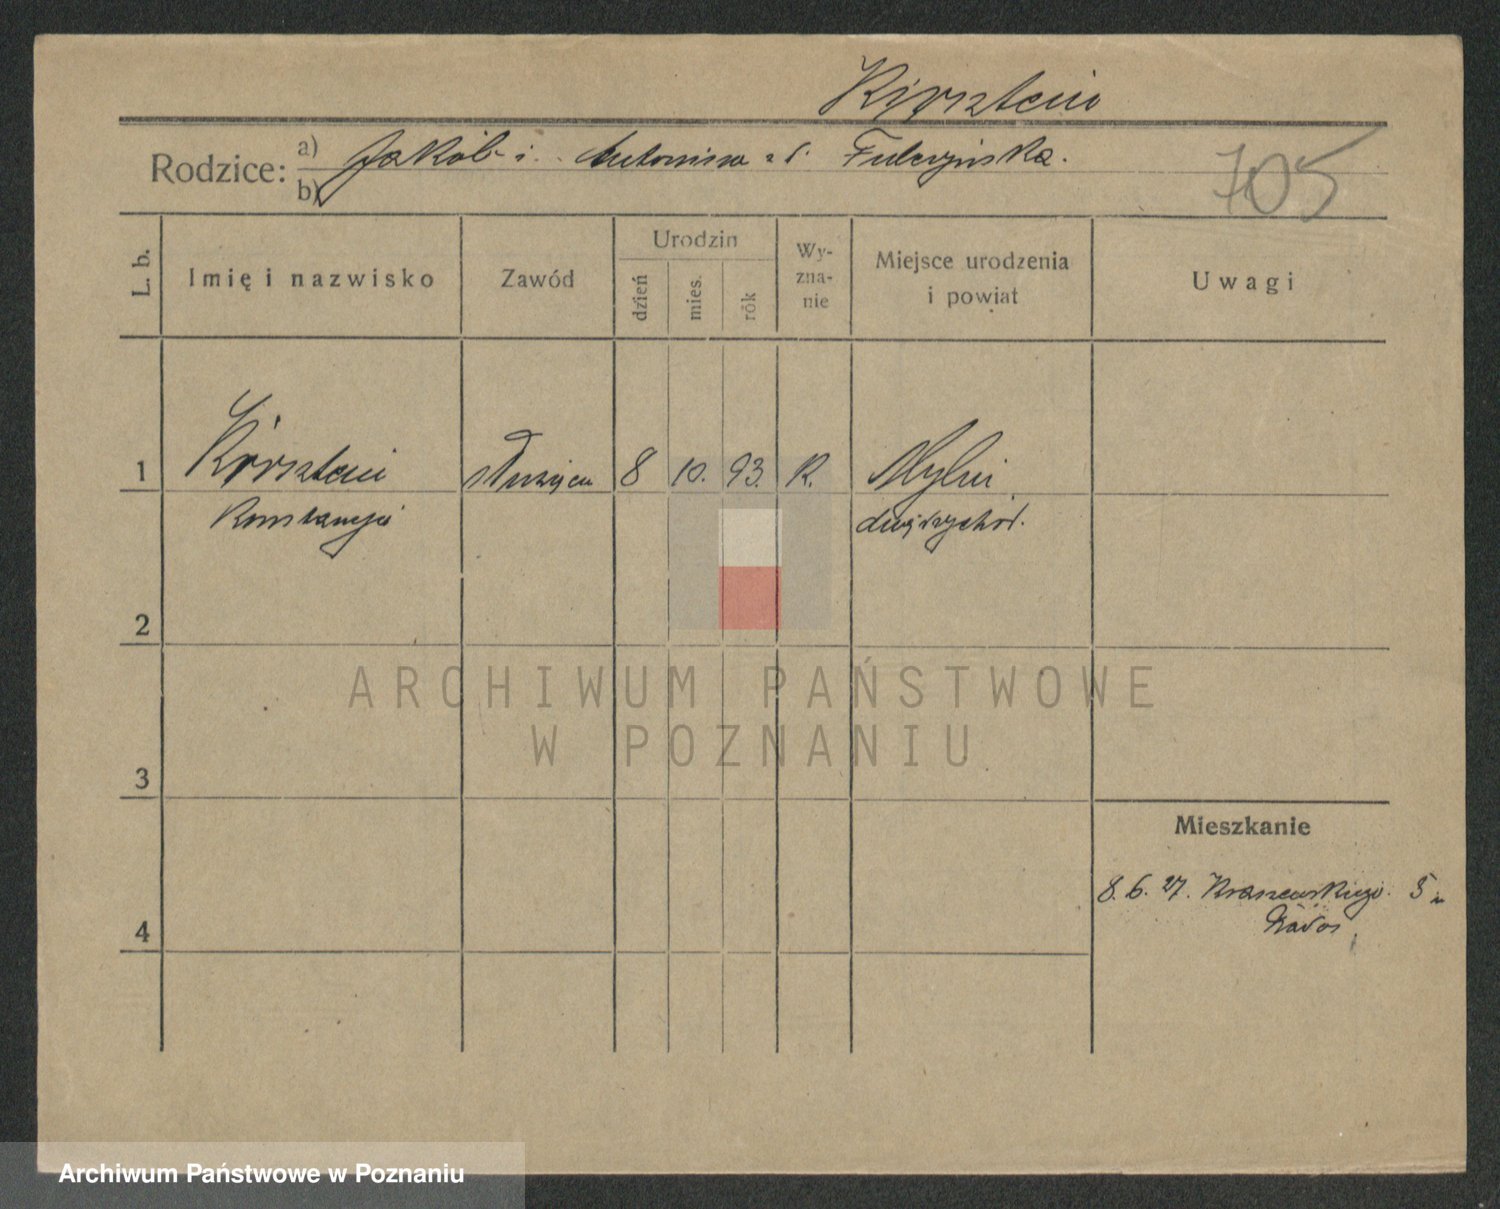 Kirsztein
Rodzice: a) Jakób i Antonina z d. Fulczyńska.
b)
705
L. b.
Imię i nazwisko
Zawód
Urodzin
dzień
mies.
rok
Wy-
zna-
nie
Miejsce urodzenia
i powiat
Uwagi
1 Kirsztein służąca 8 10. 93. R. Mylin
Konstancja
2
ARCHIWUM PAŃSTWOWE
W POZNANIU
3
Mieszkanie
8. 6. 27. Kraszewskiego 5
4
Archiwum Państwowe w Poznaniu